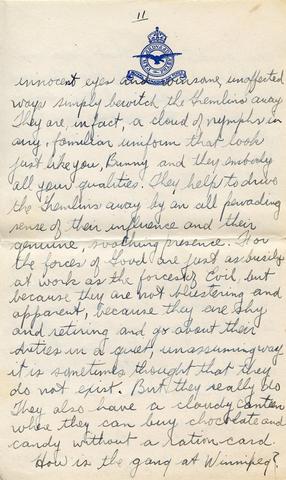 11
innocent eyes and winsome, unaffected
ways simply bewitch the Gremlins away
They are, in fact, a cloud of nymphs in
any, familiar uniform that look
just like you, Bunny and they embody
all your qualities. They help to drive
the Gremlins away by an all pervading
sense of their influence and their
genuine, soothing presence. For
the forces of Good are just as busily
at work as the forces of Evil, but
because they are not blustering and
apparent, because they are shy
and retiring and go about their
duties in a quiet, unassuming way
it is sometimes thought that they
do not exist. But they really do
They also have a cloudy canteen
where they can buy chocolate and
candy without a ration-card.
How is the gang at Winnipeg?